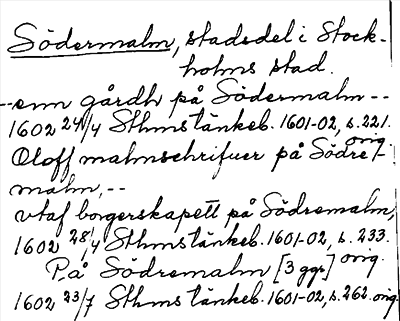 Södermalm, stadsdel i Stock-
holms stad.
--enn gårdh på Södermalm--
1602 24/4 Sthms tänkeb. 1601-02, s. 221.
orig.
Oloff malmschrifuer på Södre/-
malm, --
utaf borgerskapett på Södremalm,
1602 28/4 Sthms tänkeb. 1601-02, s. 233.
orig.
På Södremalm [3 ggr]
1602 23/7 Sthms tänkeb. 1601-02, s. 262. orig.